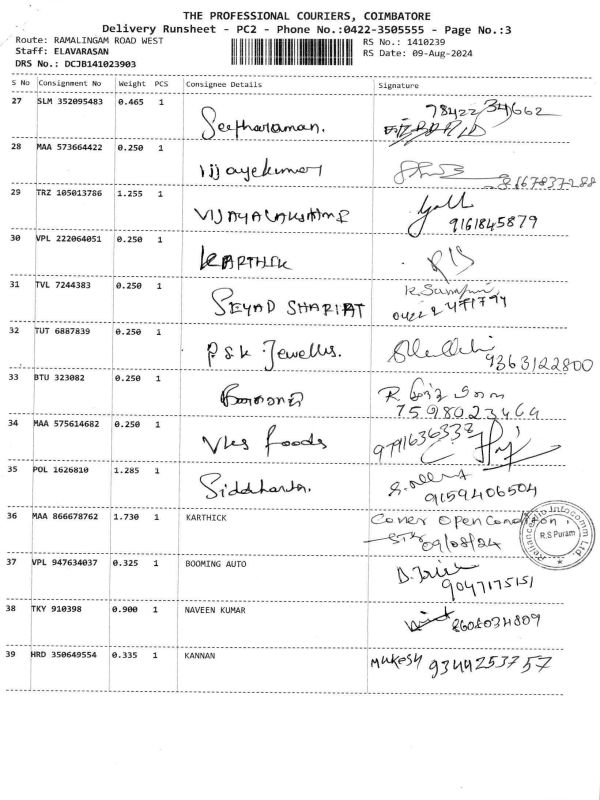 THE PROFESSIONAL COURIERS, COIMBATORE
Delivery Runsheet - PC2 - Phone No.:0422-3505555 - Page No.:3
Route: RAMALINGAM ROAD WEST RS No.: 1410239
Staff: ELAVARASAN RS Date: 09-Aug-2024
DRS No.: DCJB141023903
S No Consignment No Weight PCS Consignee Details Signature
27 SLM 352095483 0.465 1 Seetharaman. 78422 34662
28 MAA 573664422 0.250 1 Vijayekumar
29 TRZ 105013786 1.255 1 VIJAYALAKSHME
9161845879
30 VPL 222064051 0.250 1 KARTHIK
31 TVL 7244383 0.250 1 SEYAD SHARIAT
32 TUT 6887839 0.250 1 P.S.K Jewells. 9363122800
33 BTU 323082 0.250 1 R.
7598023464
34 MAA 575614682 0.250 1 Vks foods 9791636333
35 POL 1626810 1.285 1 Siddharta.
9159406504
36 MAA 866678762 1.730 1 KARTHICK Cover Open Condition,
09/08/24
Reliance Infocomm Ltd
R.S Puram
37 VPL 947634037 0.325 1 BOOMING AUTO
9047175151
38 TKY 910398 0.900 1 NAVEEN KUMAR 8608034809
39 HRD 350649554 0.335 1 KANNAN Mukesh 9344253757